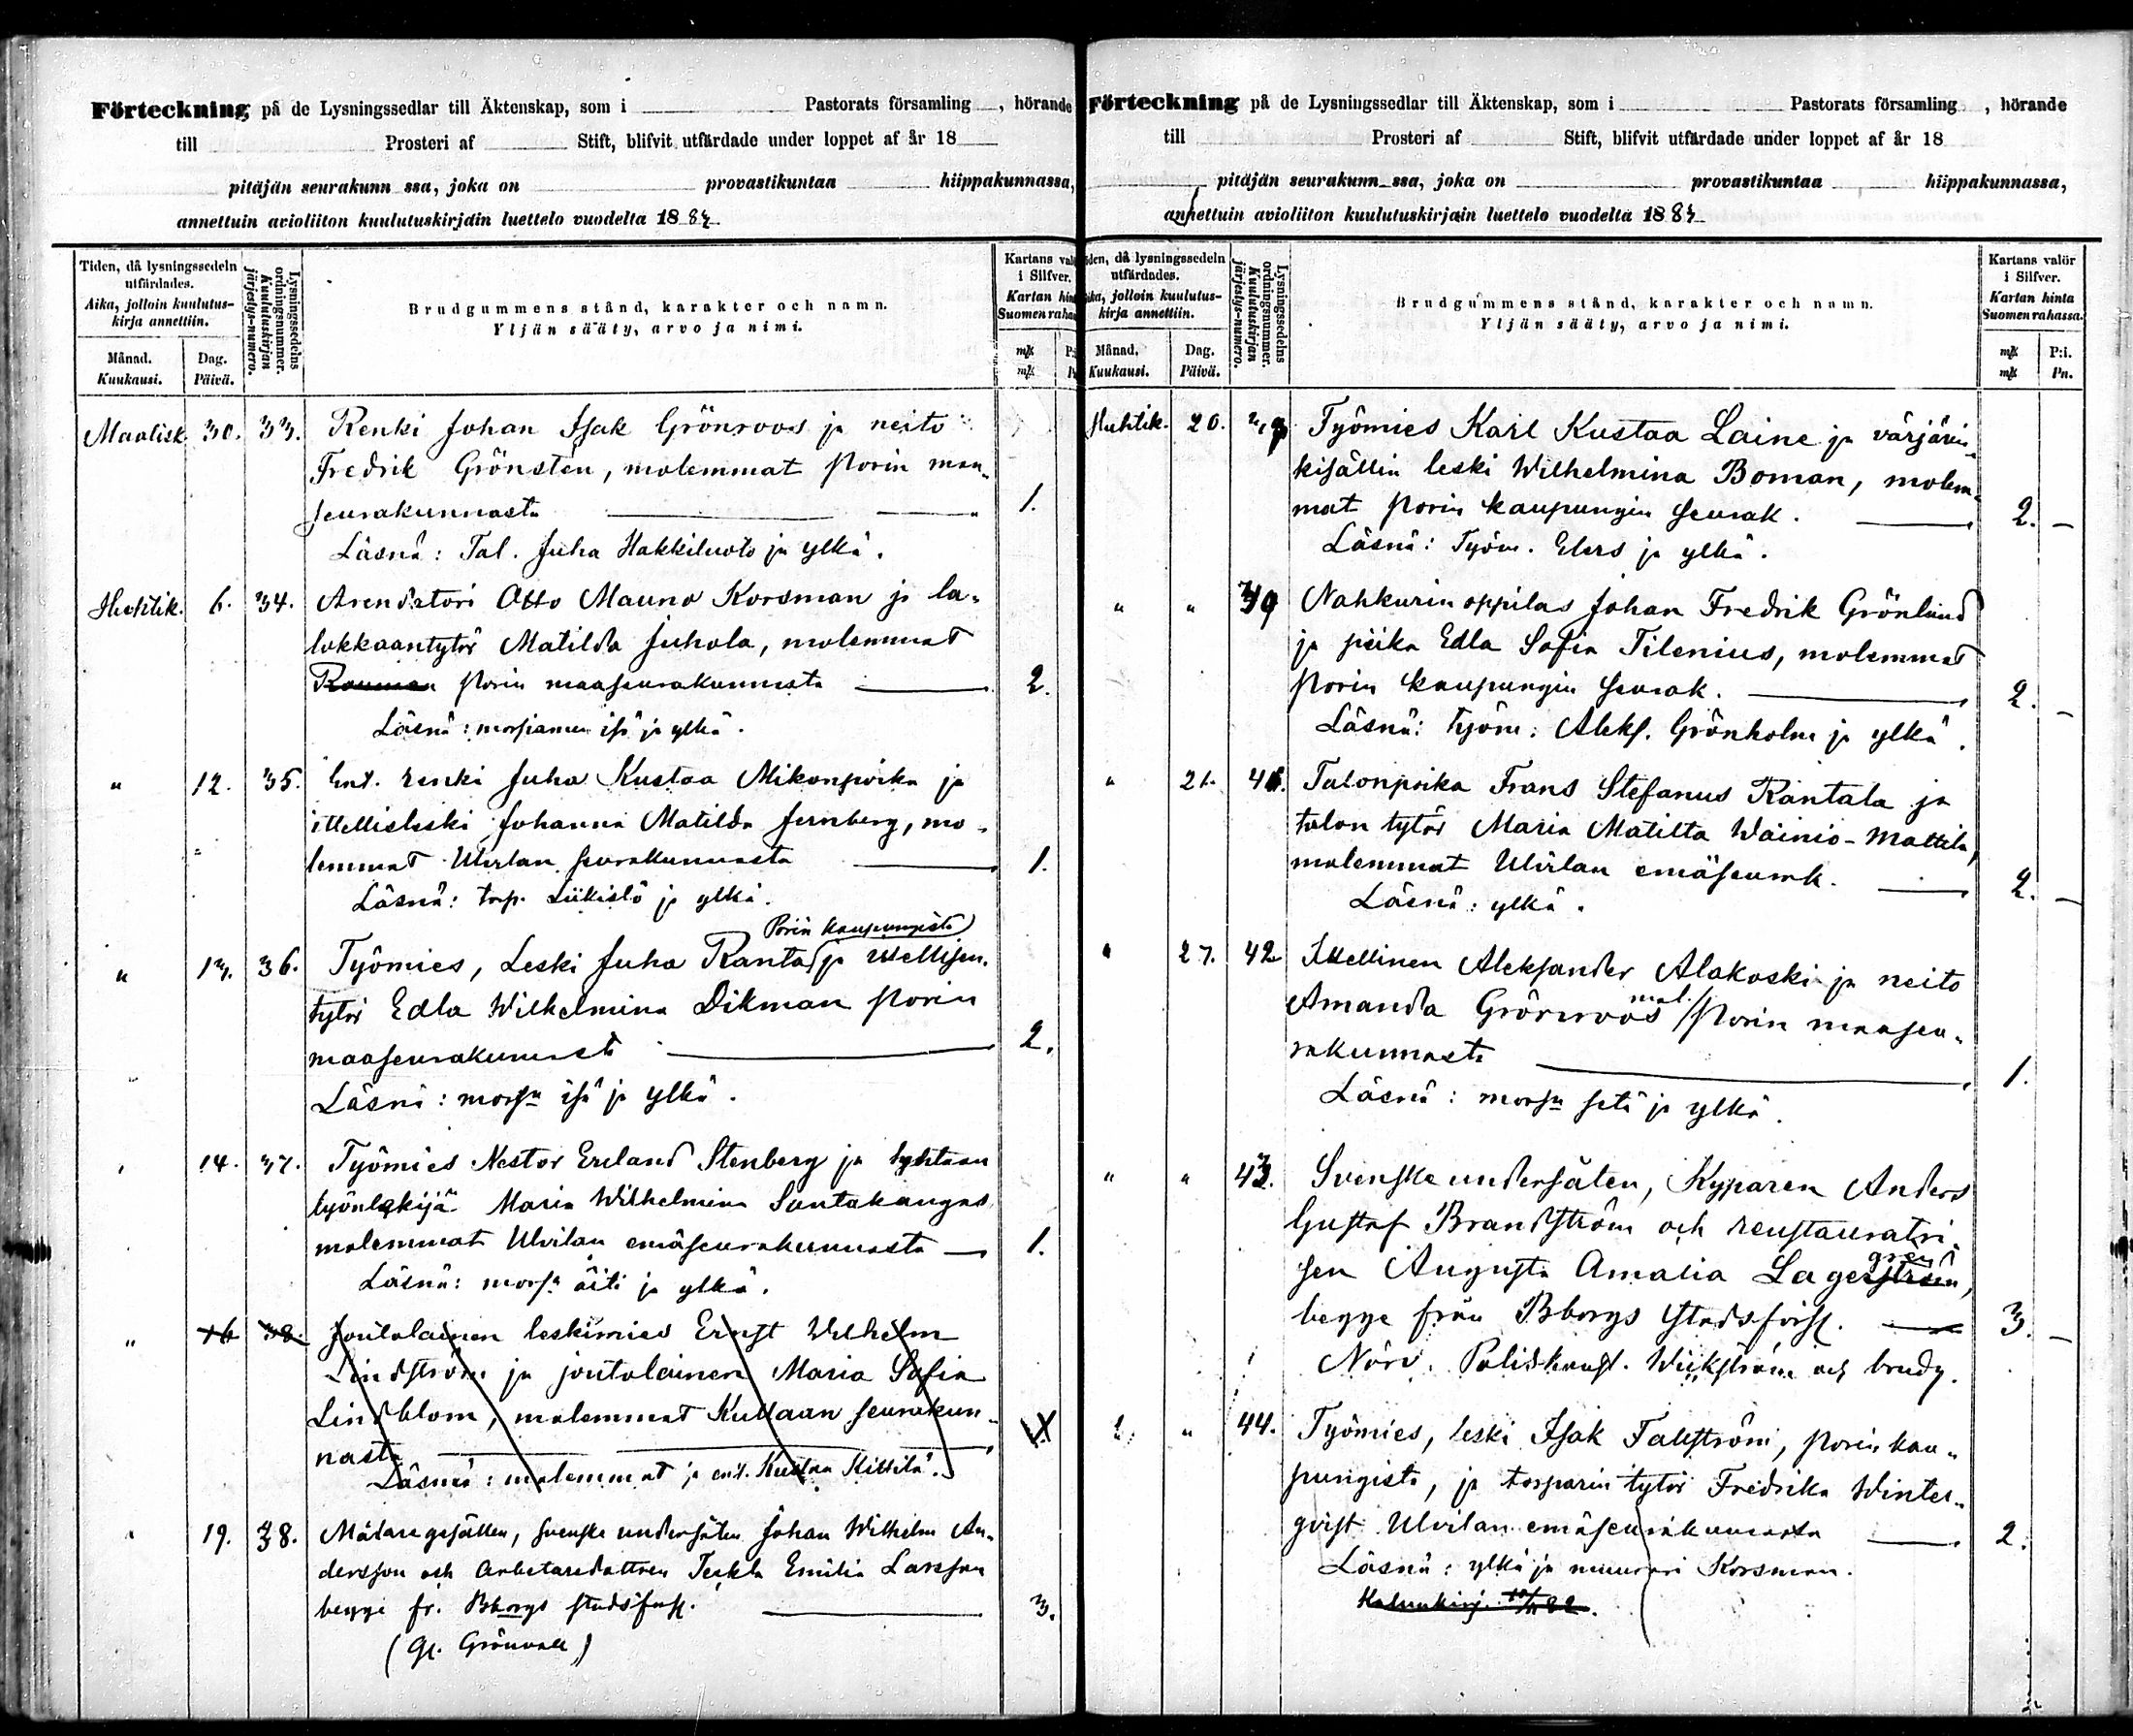 Förteckning på de Lysningssedlar till Äktenskap, som i Pastorats församling , hörande
till Prosteri af Stift, blifvit utfärdade under loppet af år 18
pitäjän seurakunn ssa, joka on provastikuntaa hiippakunnassa,
annettuin avioliiton kuulutuskirjain luettelo vuodelta 188
Tiden, då lysningssedeln utfärdades.
Aika, jolloin kuulutuskirja annettiin.
Månad. Kuukausi.
Dag. Päivä.
Lysningssedelns ordningsnummer.
Kuulutuskirjan järjestys-numero.
Brudgummens stånd, karakter och namn.
Yljän sääty, arvo ja nimi.
Kartans val
i Silfver.
Kartan hin
Suomen raha
Maalisk. 30. 33. Renki Johan Isak Grönroos ja neito
Fredrik Grönstén, molemmat Porin maa-
seurakunnasta 1.
Läsnä: Tal. Juha Hakkiluoto ja ylkä.
Huhtik. 6. 34. Arendatori Otto Mauno Korsman ja ta-
lokkaantytär Matilda Juhola, molemmat
Rauman Porin maaseurakunnasta 2.
Läsnä: morsiamen isä ja ylkä.
" 12. 35. Ent. renki Juha Kustaa Mikonpoika ja
itellisleski Johanna Matilda Jernberg, mo-
lemmat Ulvilan seurakunnasta 1.
Läsnä: torp. Liikistö ja ylkä.
Porin kaupungista
" 13. 36. Työmies, Leski Juha Ranta ja itsellisen
tytär Edla Wilhelmina Dikman Porin
maaseurakunnasta 2.
Läsnä: morsn isä ja ylkä.
14. 37. Työmies Nestor Erland Stenberg ja
työntekijä Maria Wilhelmina Santakangas
molemmat Ulvilan emäseurakunnasta 1.
Läsnä: morsn äiti ja ylkä.
" 16 38. Joutolainen leskimies Ernst Wilhelm
Lindström ja joutolainen Maria Sofia
Lindblom, molemmat Kullaan seurakun-
nasta
Läsnä: molemmat ja ent. Kustaa Kittilä.
19. 38. Målaregesällen, svenske undersåten Johan Wilhelm An-
dersson och arbetaredottren Teckla Emilia Larsson
begge fr. Bborgs stadsförs. 3.
(Gl. Grönvall)
Förteckning på de Lysningssedlar till Äktenskap, som i Pastorats församling , hörande
till Prosteri af Stift, blifvit utfärdade under loppet af år 18
pitäjän seurakunn ssa, joka on provastikuntaa hiippakunnassa,
annettuin avioliiton kuulutuskirjain luettelo vuodelta 188
den, då lysningssedeln utfärdades.
ika, jolloin kuulutuskirja annettiin.
Månad. Kuukausi.
Dag. Päivä.
Lysningssedelns ordningsnummer.
Kuulutuskirjan järjestys-numero.
Brudgummens stånd, karakter och namn.
Yljän sääty, arvo ja nimi.
Kartans valör
i Silfver.
Kartan hinta
Suomen rahassa.
P:i.
Pn.
Huhtik. 20. Työmies Karl Kustaa Laine ja värjärin-
kisällin leski Wilhelmina Boman, molem-
mat Porin kaupungin seurak. 2. –
Läsnä: Työm. Elers ja ylkä.
" " Nahkurin oppilas Johan Fredrik Grönlund
ja piika Edla Sofia Tilenius, molemmat
Porin kaupungin seurak. 2. –
Läsnä: Työm. Aleks. Grönholm ja ylkä.
" 21. 41. Talonpoika Frans Stefanus Rantala ja
talon tytär Maria Matilta Wainio-Mattila,
molemmat Ulvilan emäseurak. 2. –
Läsnä: ylkä.
" 27. 42 Itsellinen Aleksander Alakoski ja neito
Amanda Grönroos mol. Porin maaseu-
rakunnasta 1.
Läsnä: morsn setä ja ylkä.
" " 43. Svenske undersåten, Kyparen Anders
Gustaf Brandström och restauratri-
sen Augusta Amalia Lagerström, gren
begge från Bborgs Stadsförs. 3. –
Närv. Poliskonst. Wickström och brudg.
" 44. Työmies, leski Isak Fallström, Porin kau-
pungista, ja torparin tytär Fredrika Winter-
qvist Ulvilan emäseurakunnasta 2.
Läsnä: ylkä ja muurari Korsman.